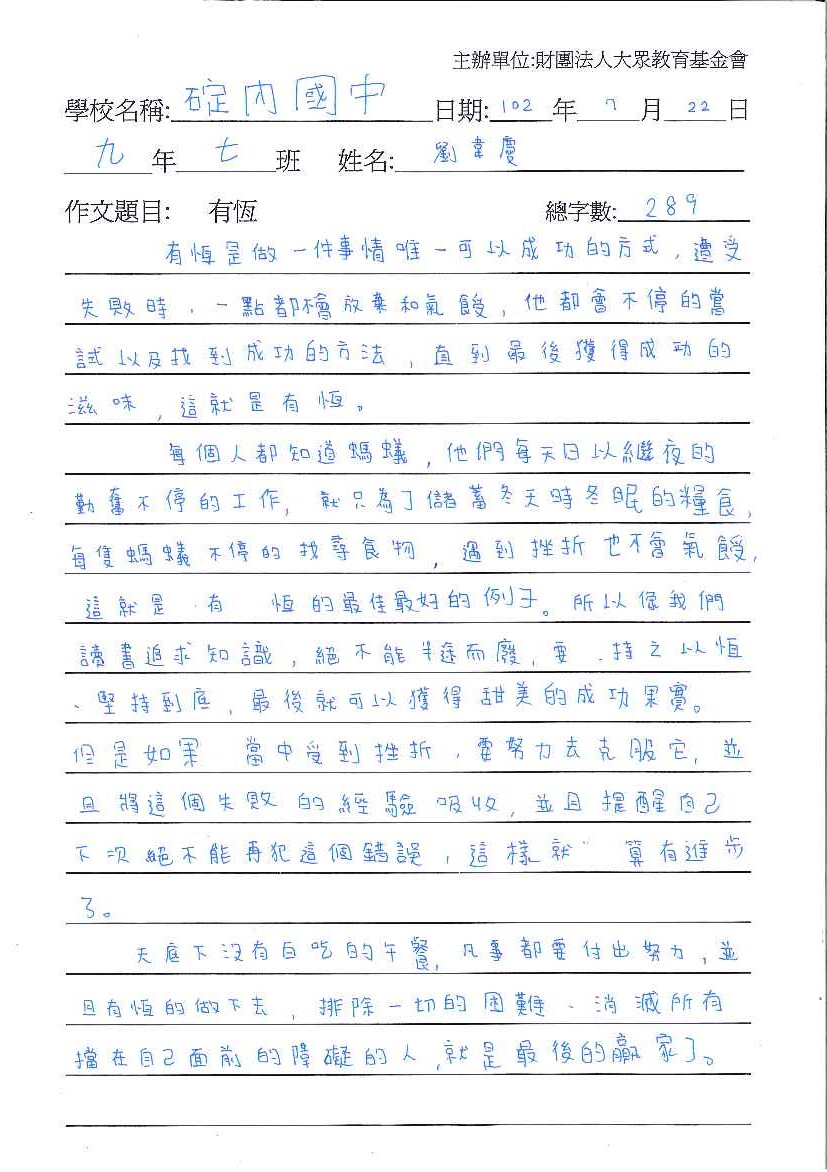 主辦單位:財團法人大眾教育基金會
學校名稱: 碇內國中 日期: 102 年 7 月 22 日
九 年 七 班 姓名: 劉韋慶
作文題目: 有恆 總字數: 289
有恆是做一件事情唯一可以成功的方式，遭受
失敗時，一點都不會放棄和氣餒，他都會不停的嘗
試以及找到成功的方法，直到最後獲得成功的
滋味，這就是有恆。
每個人都知道螞蟻，他們每天日以繼夜的
勤奮不停的工作，就只為了儲蓄冬天時冬眠的糧食，
每隻螞蟻不停的找尋食物，遇到挫折也不會氣餒，
這就是有恆的最佳最好的例子。所以像我們
讀書追求知識，絕不能半途而廢，要持之以恆
、堅持到底，最後就可以獲得甜美的成功果實。
但是如果當中受到挫折，要努力去克服它，並
且將這個失敗的經驗吸收，並且提醒自己
下次絕不能再犯這個錯誤，這樣就算有進步
了。
天底下沒有白吃的午餐，凡事都要付出努力，並
且有恆的做下去，排除一切的困難、消滅所有
擋在自己面前的障礙的人，就是最後的贏家了。